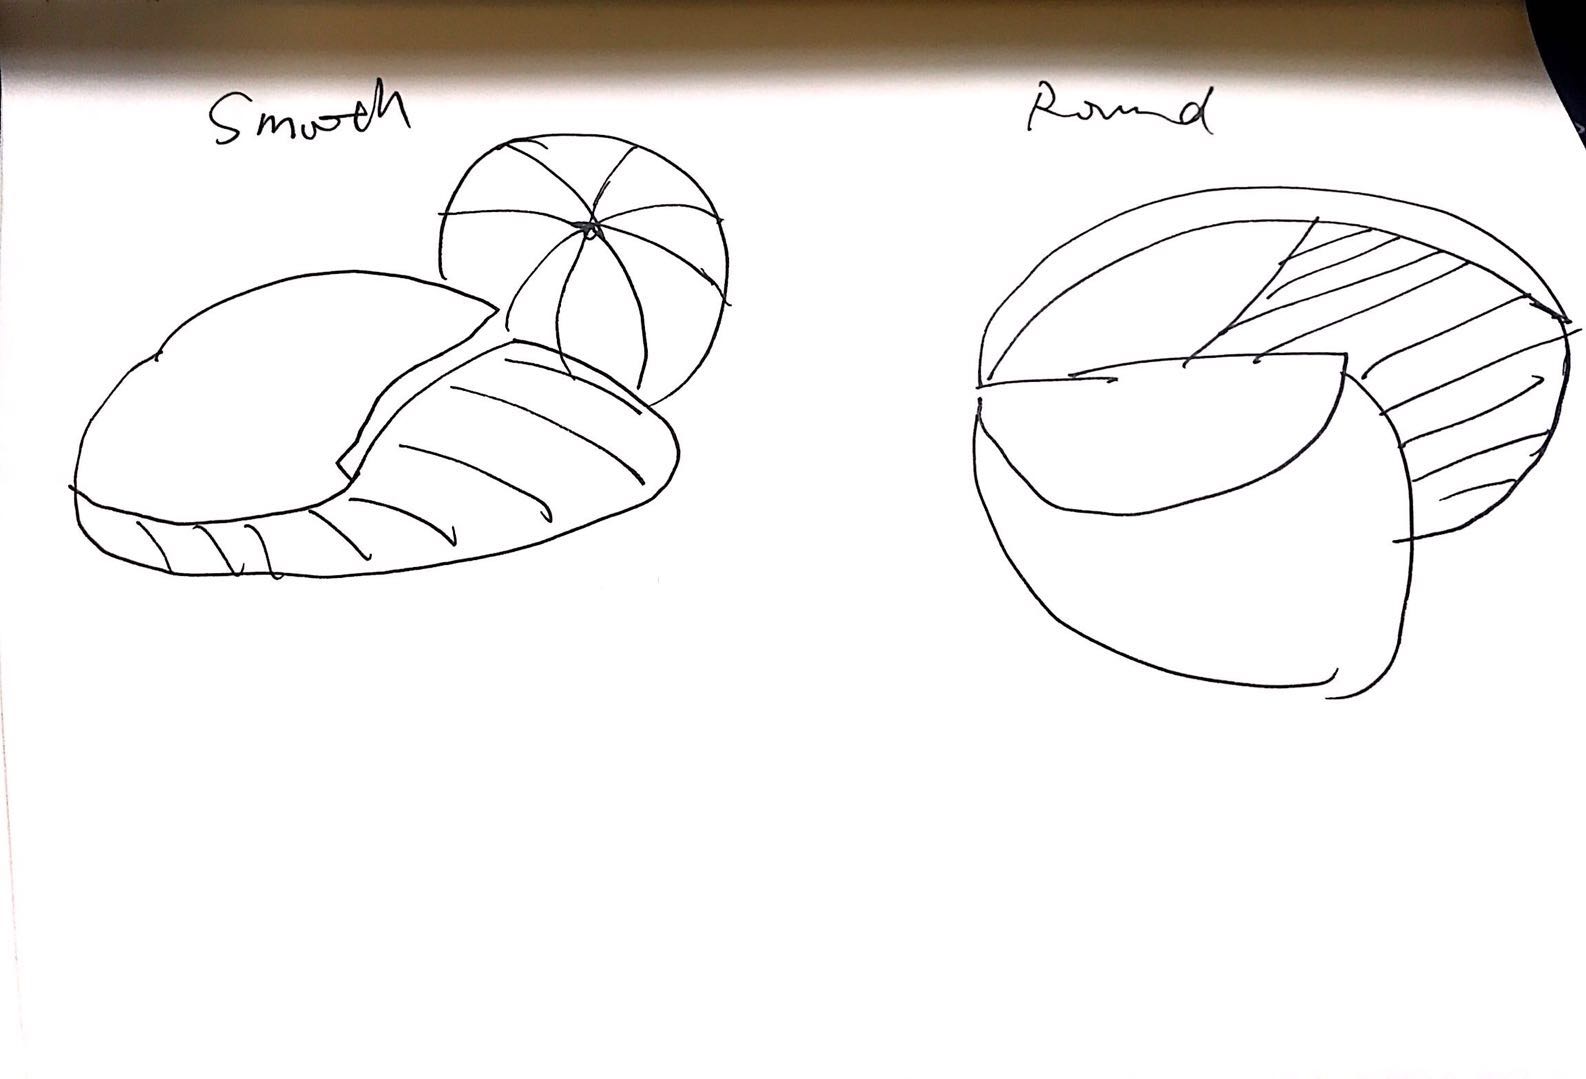 Smooth
Round